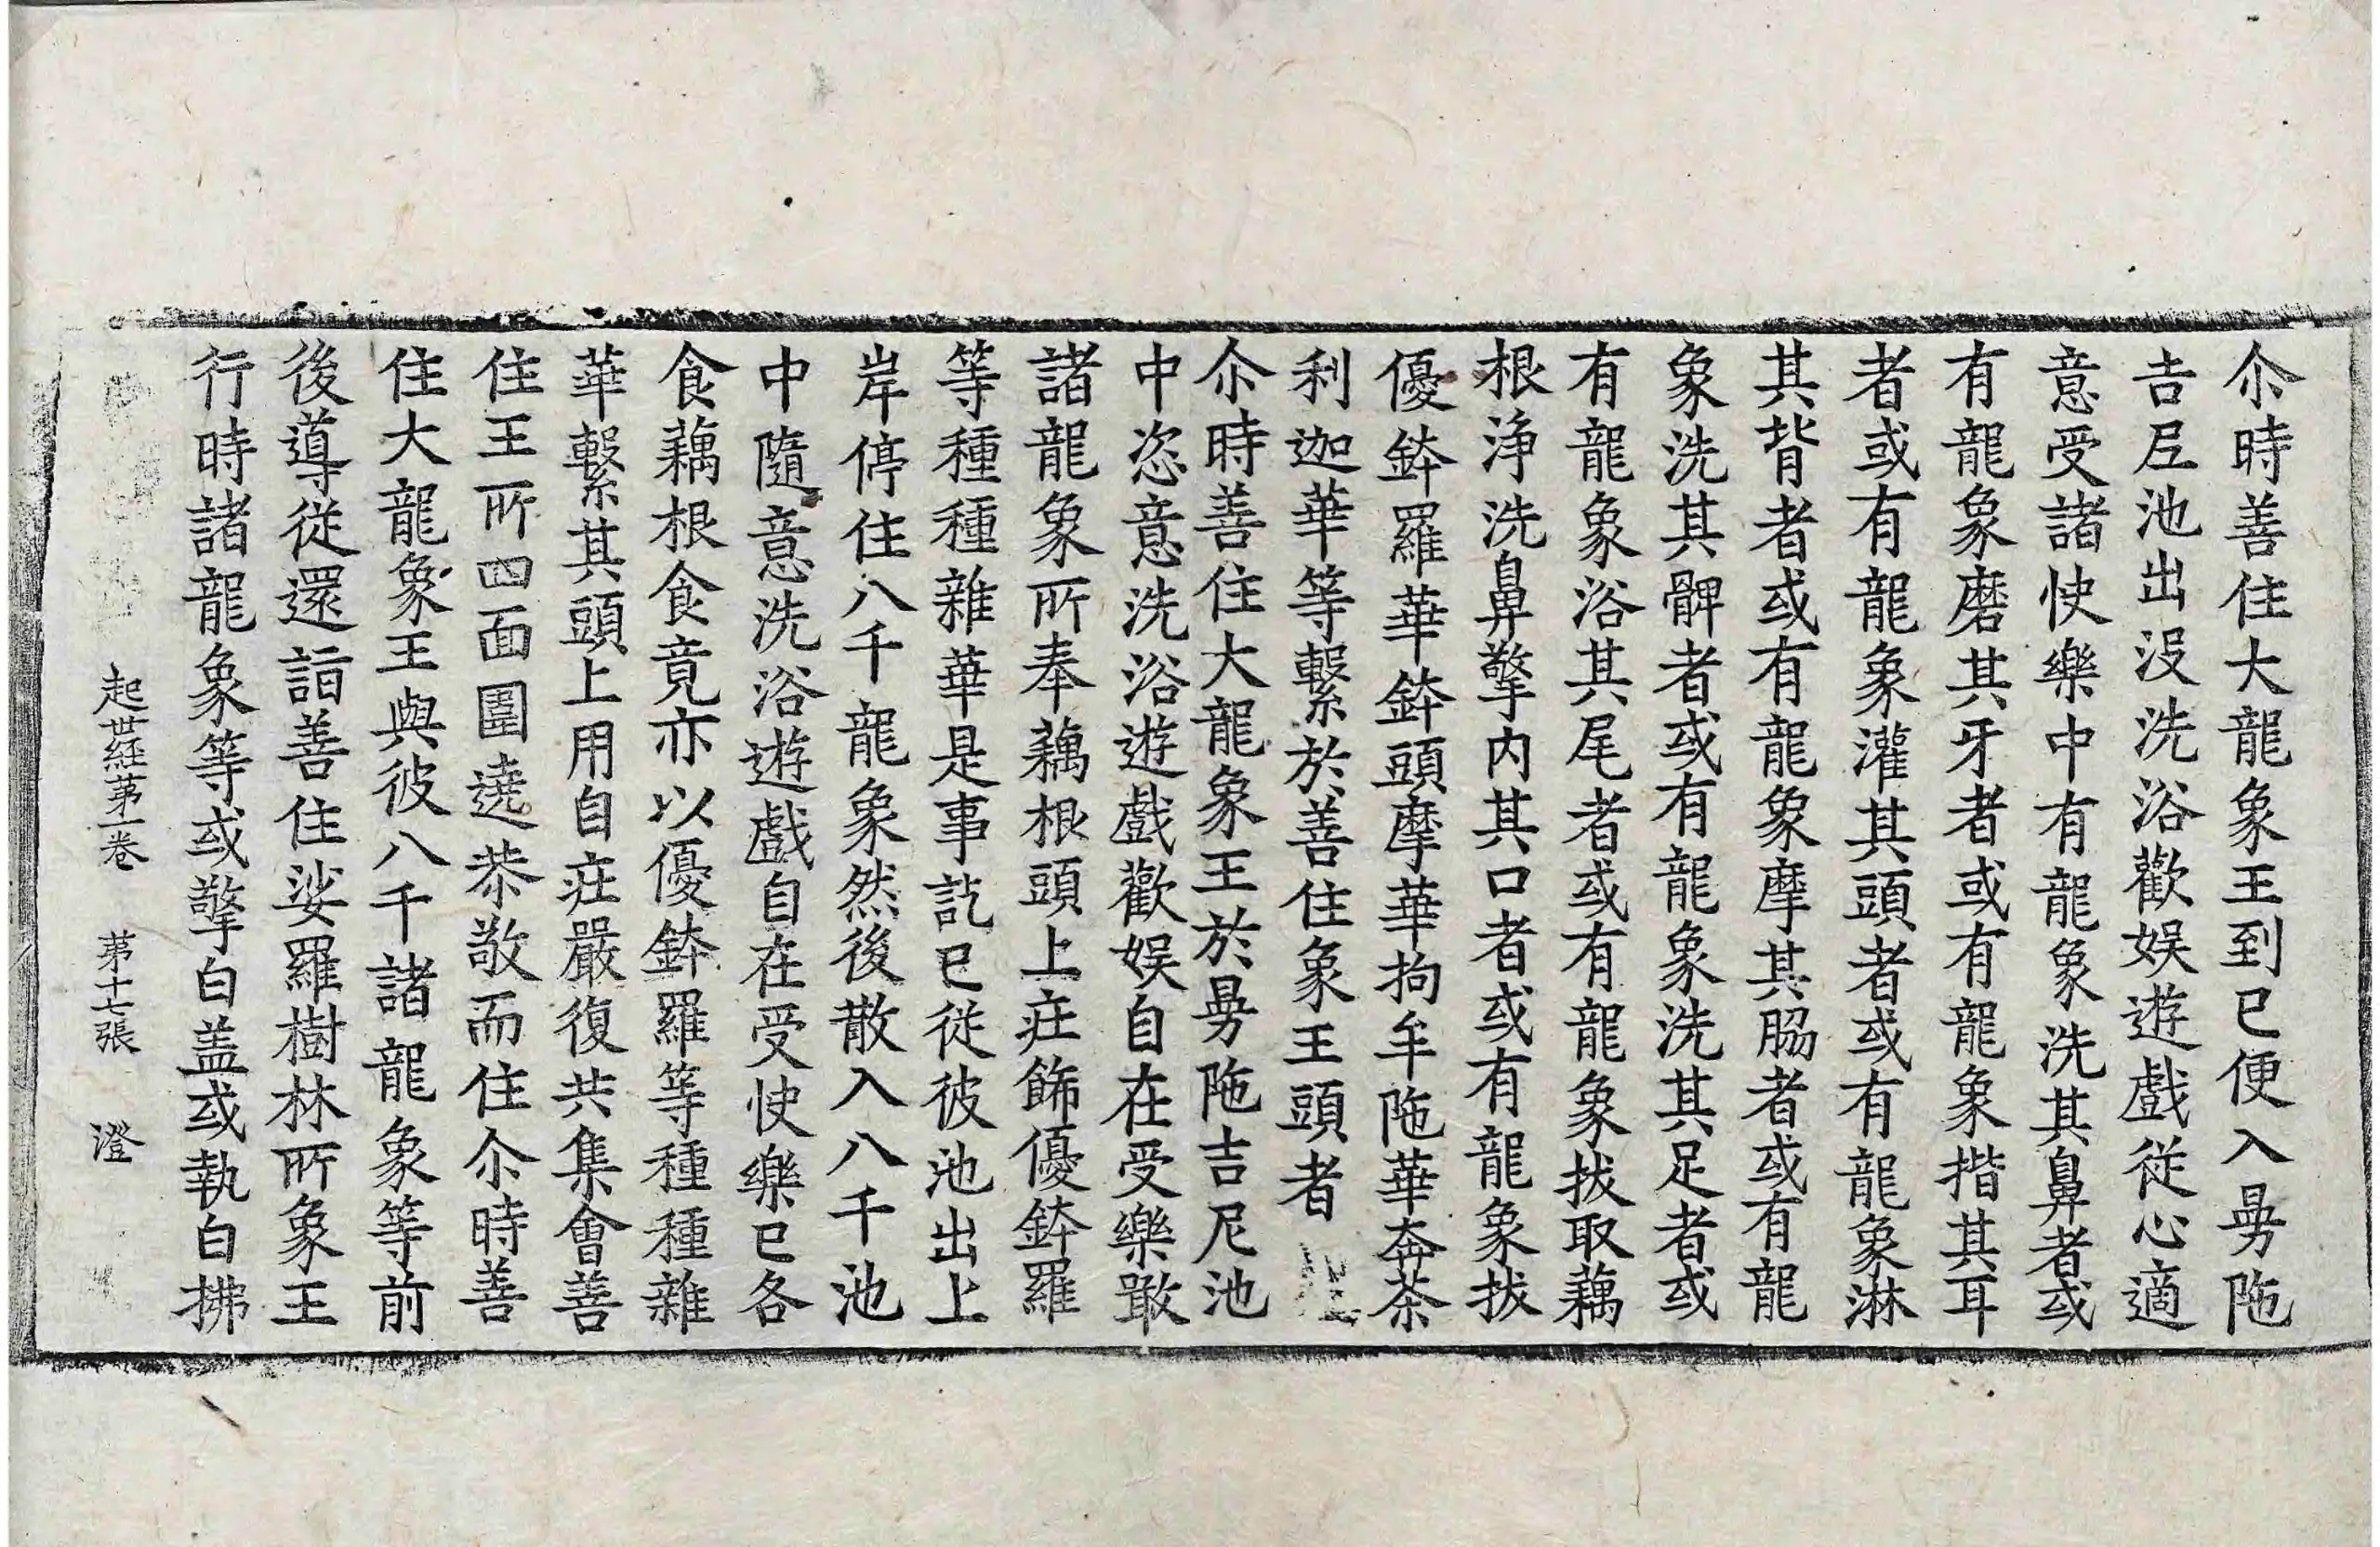 尒時善住大龍象王到已便入曼陁
吉尼池出没洗浴歡娱遊戲従心適
意受諸快樂中有龍象洗其鼻者或
有龍象磨其牙者或有龍象揩其耳
者或有龍象灌其頭者或有龍象淋
其背者或有龍象摩其脇者或有龍
象洗其髀者或有龍象洗其足者或
有龍象浴其尾者或有龍象拔取藕
根浄洗鼻擎内其口者或有龍象拔
優鉢羅華鉢頭摩華拘牟陁華奔茶
利迦華等繫於善住象王頭者
尒時善住大龍象王於曼陁吉尼池
中恣意洗浴遊戲歡娱自在受樂噉
諸龍象所奉藕根頭上莊飾優鉢羅
等種種雜華是事訖已従彼池出上
岸停住八千龍象然後散入八千池
中隨意洗浴遊戲自在受快樂已各
食藕根食竟亦以優鉢羅等種種雜
華繫其頭上用自莊嚴復共集會善
住王所四面圍遶恭敬而住尒時善
住大龍象王與彼八千諸龍象等前
後導従還詣善住娑羅樹林所象王
行時諸龍象等或擎白盖或執白拂
起世経苐一卷 苐十七張 澄